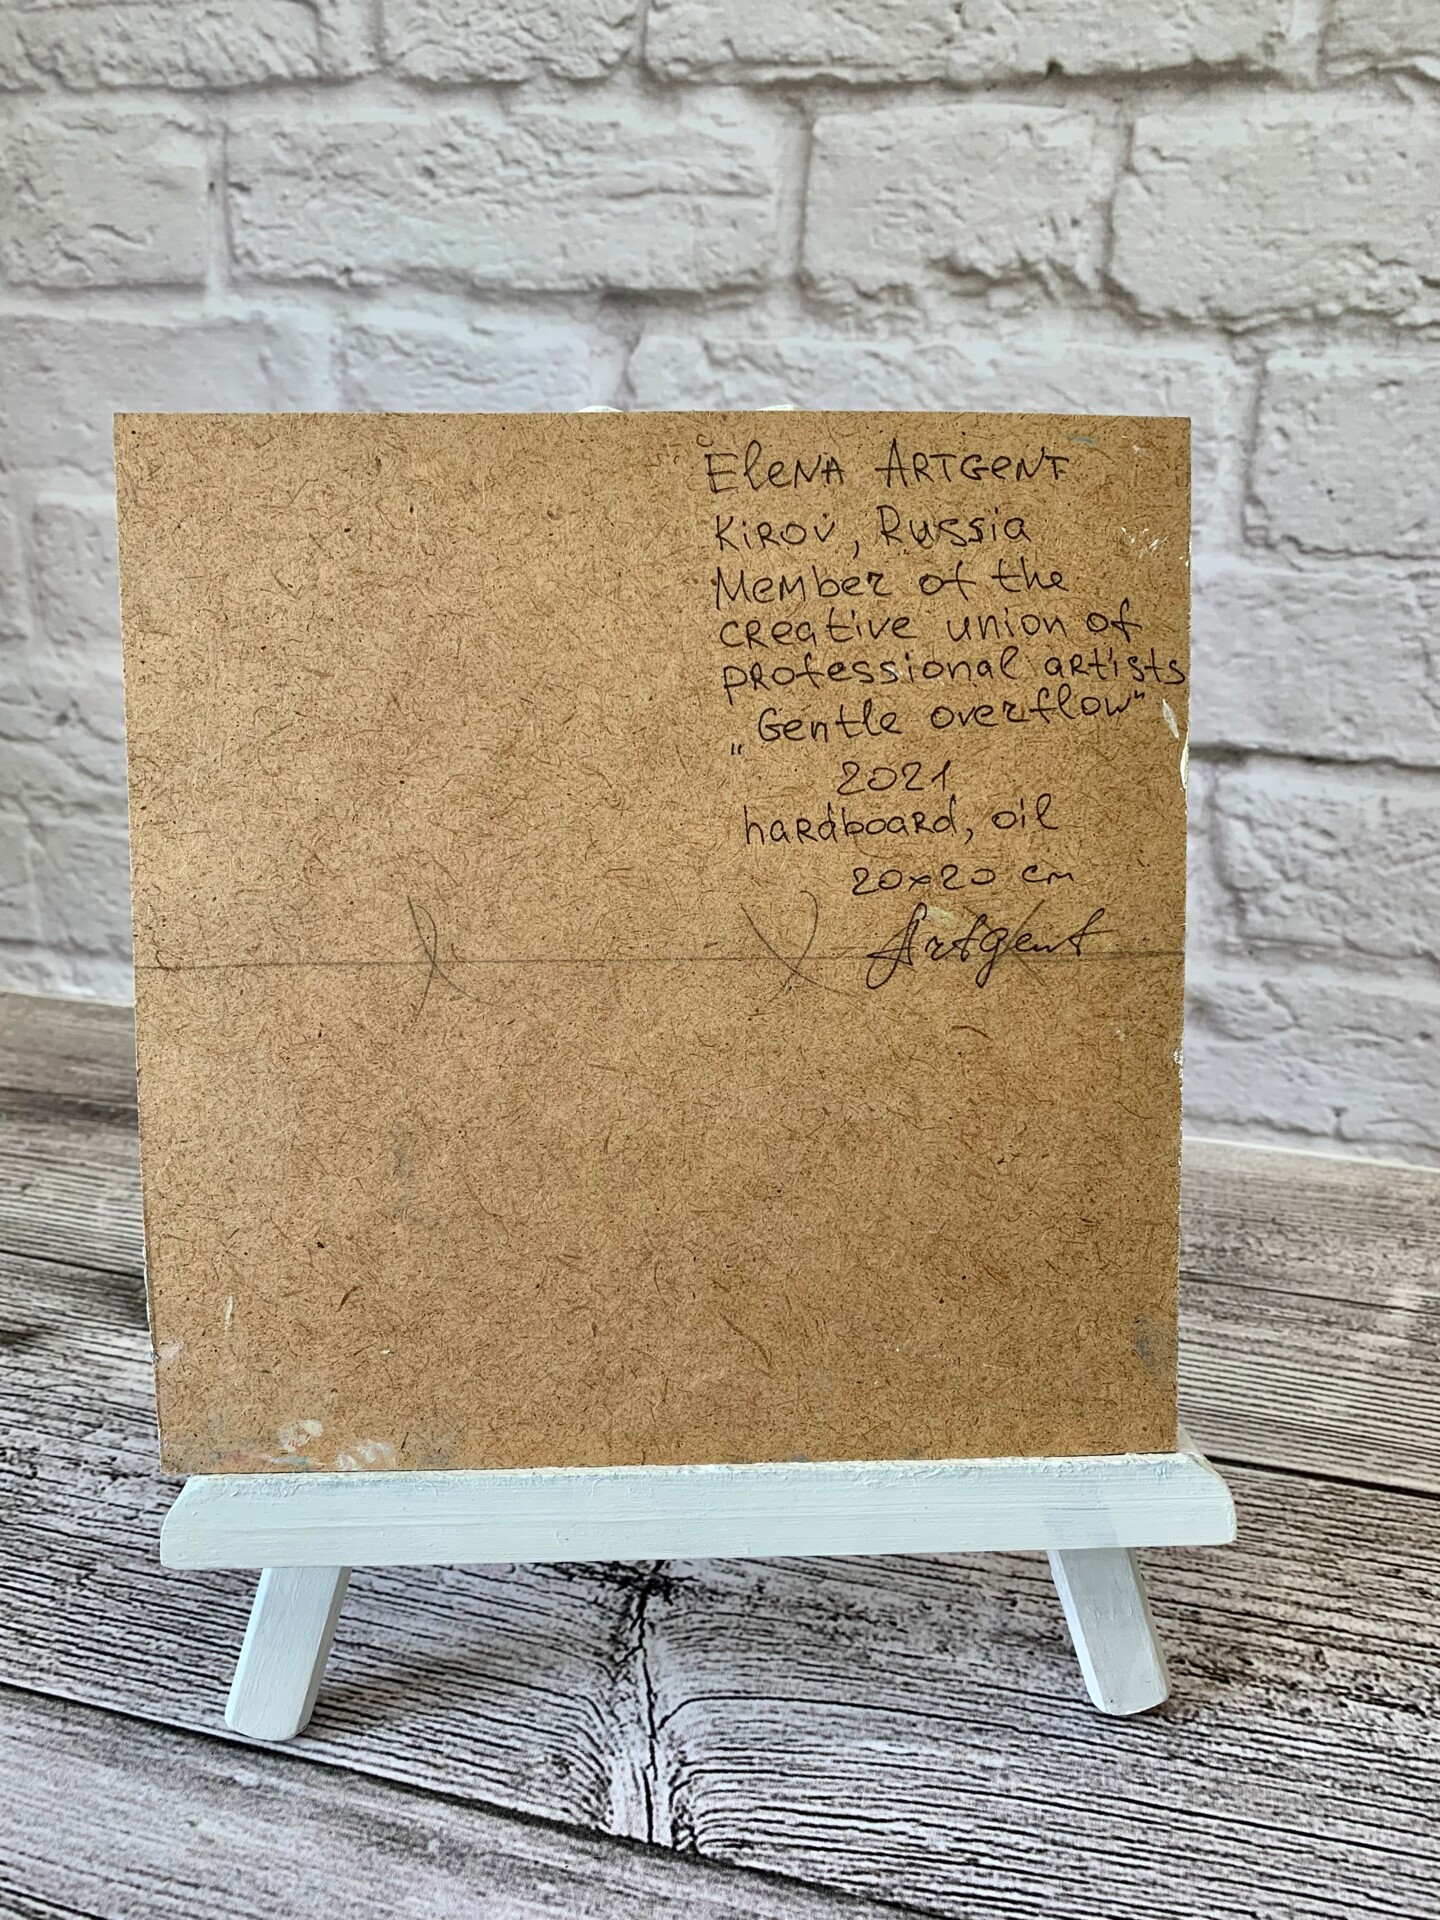 Elena Artgent
Kirov, Russia
Member of the
creative union of
professional artists
„Gentle overflow"
2021
hardboard, oil
20x20 cm
Artgent